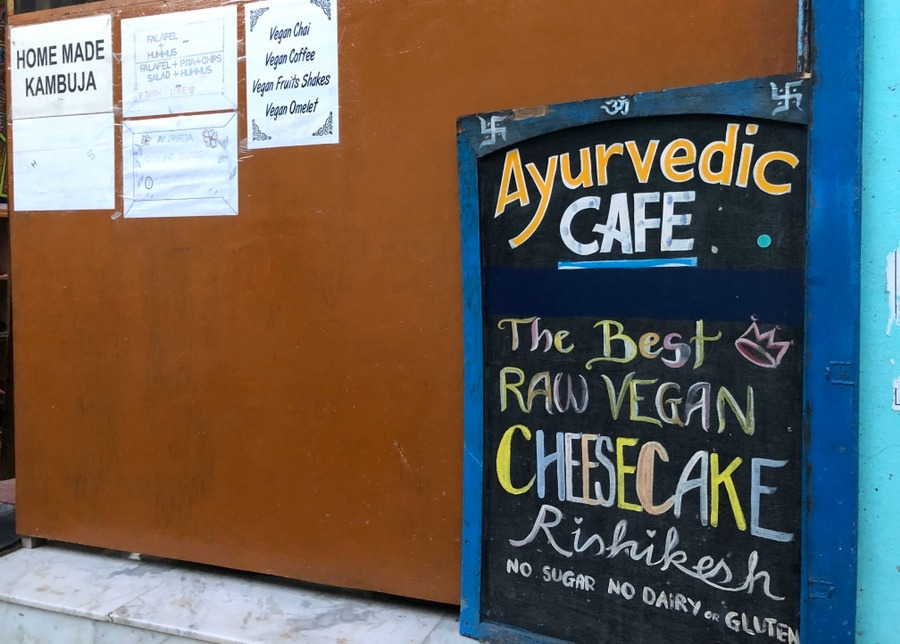 HOME MADE
KAMBUJA
FALAFEL
+
HUMUS
FALAFEL + PITA + CHIPS
SALAD + HUMMUS
WITH LOVE
AYURVEDA
Vegan Chai
Vegan Coffee
Vegan Fruits Shakes
Vegan Omelet
ॐ
Ayurvedic
CAFE
The Best
RAW VEGAN
CHEESECAKE
Rishikesh
NO SUGAR NO DAIRY or GLUTEN